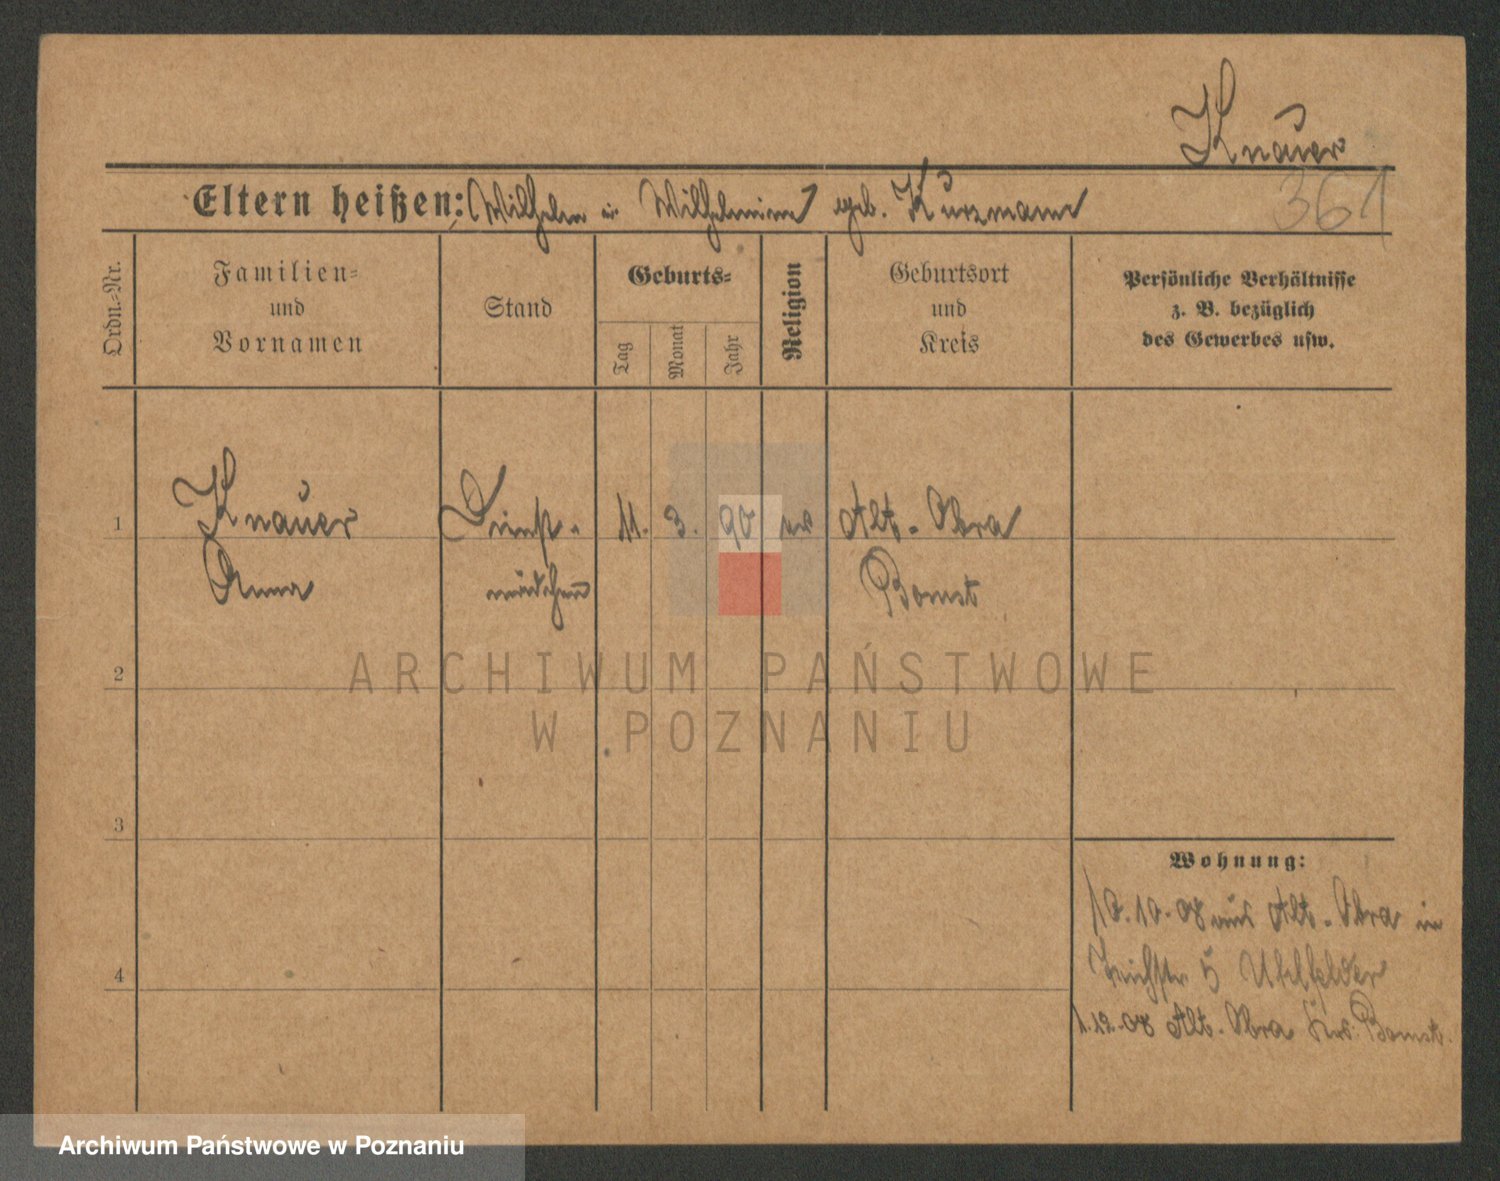 Knauer
361
Eltern heißen: Wilhelm u. Wilhelmine geb. Kurzmann
Ordn.-Nr.
Familien-
und
Vornamen
Stand
Geburts-
Tag
Monat
Jahr
Religion
Geburtsort
und
Kreis
Persönliche Verhältnisse
z. B. bezüglich
des Gewerbes usw.
1
Knauer
Anna
Dienst-
mädchen
11. 3. 90 ev
Alt-Obra
Bomst
2
ARCHIWUM PAŃSTWOWE
W POZNANIU
3
4
Wohnung:
10.10.08 aus Alt-Obra in
Teichstr 5
1.12.08 Alt-Obra Krs. Bomst.
Archiwum Państwowe w Poznaniu